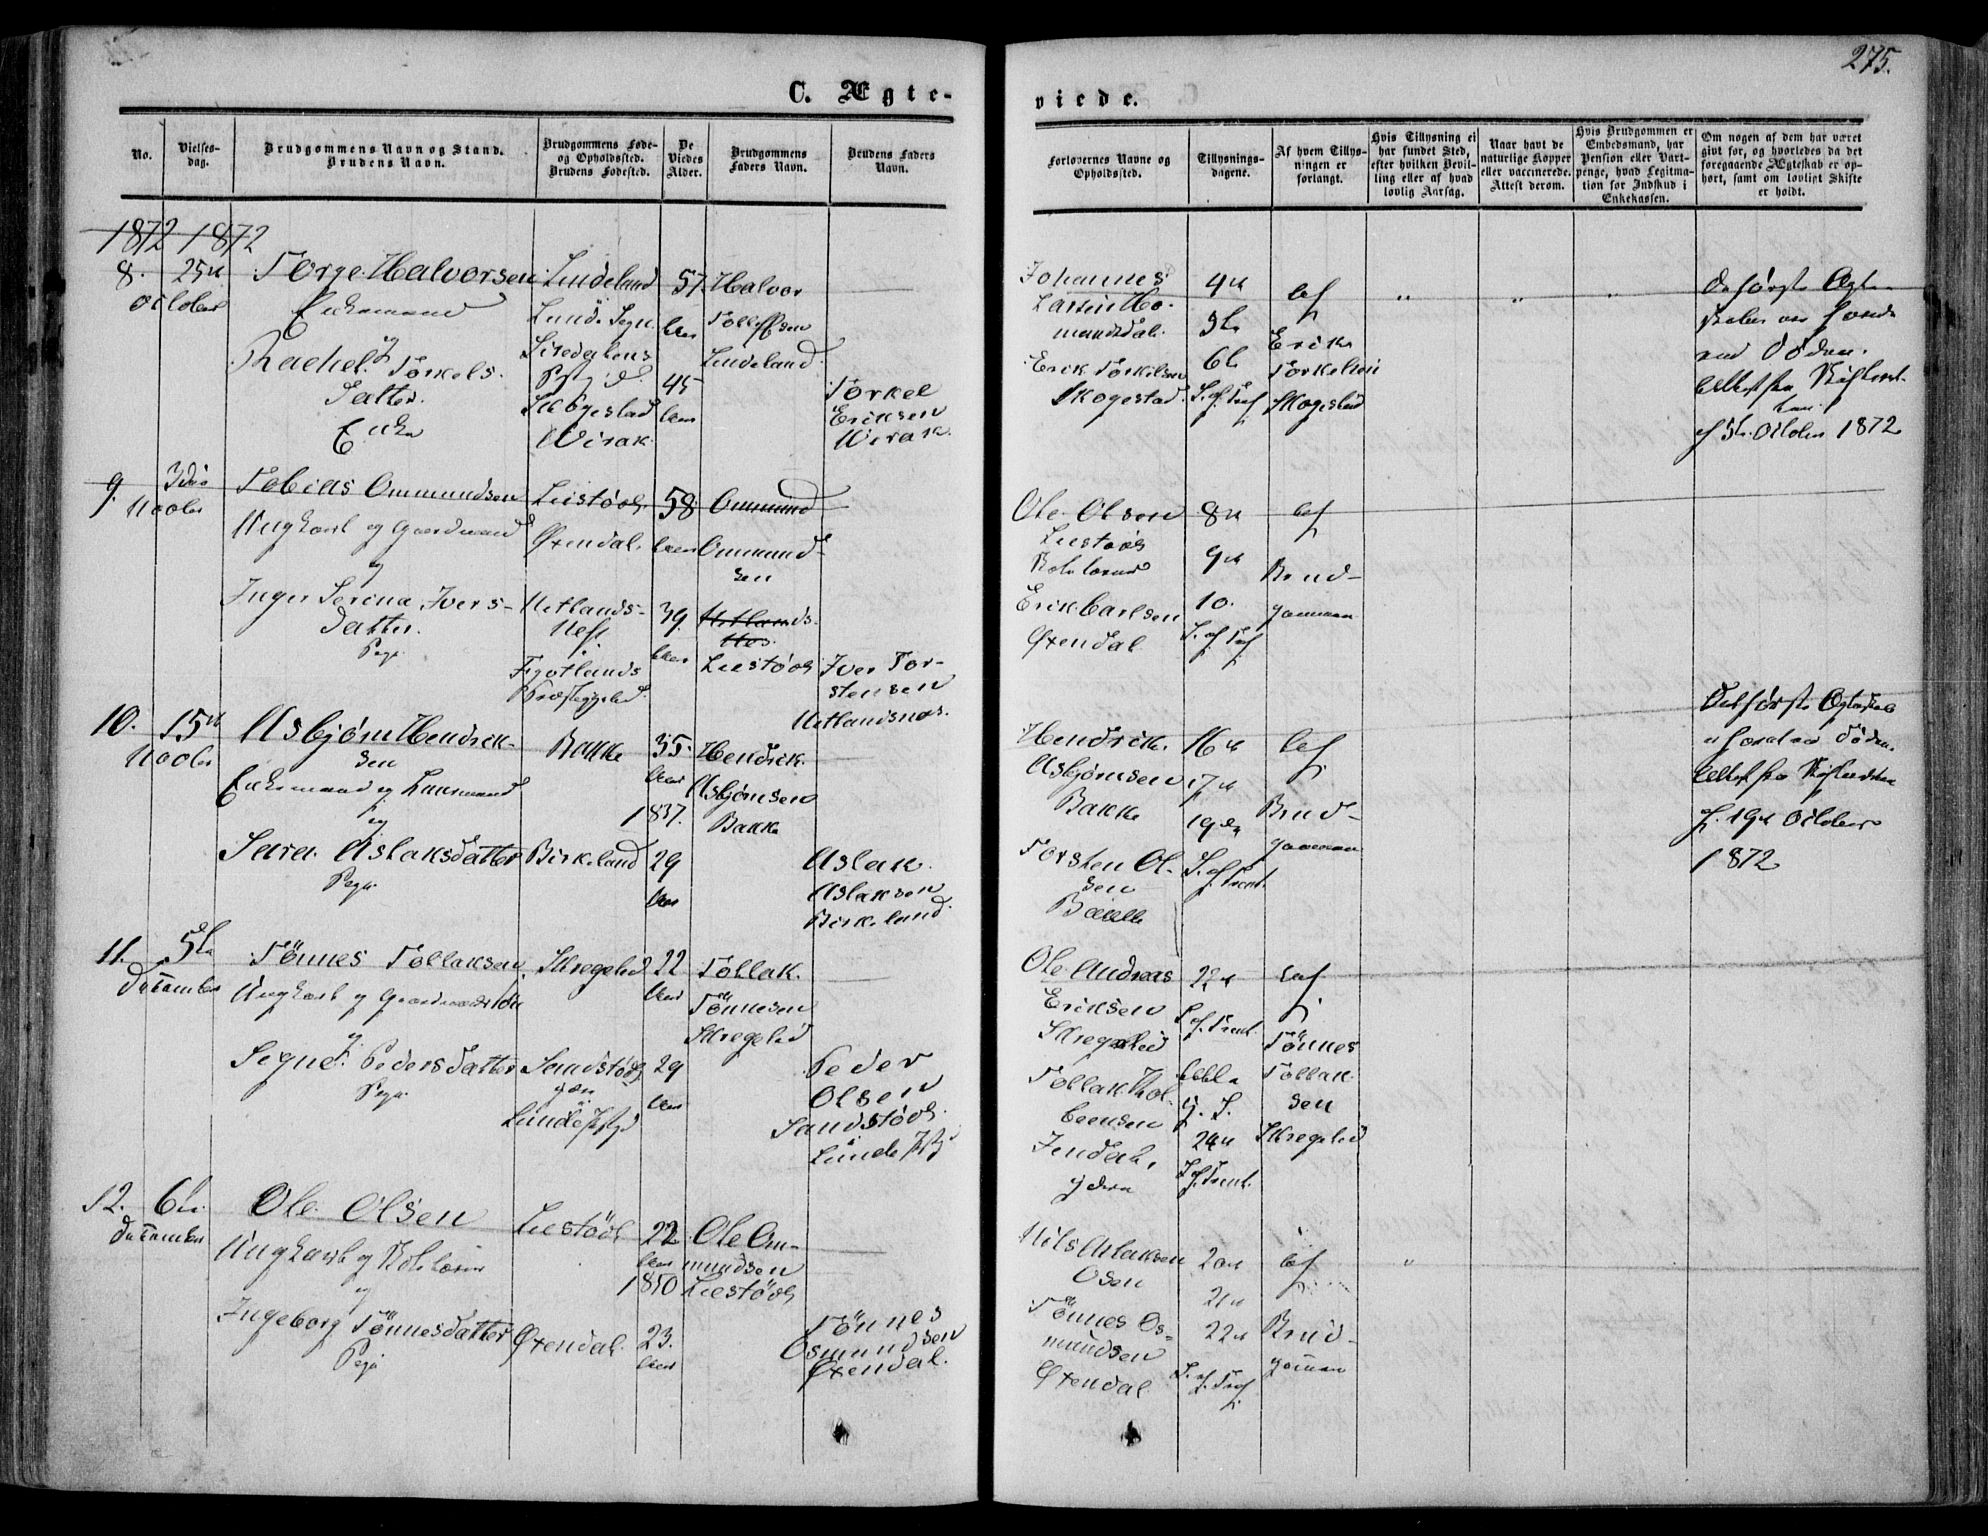 275.
C. Ægte-
viede.
No.
Vielses-
dag.
Brudgommens Navn og Stand.
Brudens Navn.
Brudgommens Føde-
og Opholdssted.
Brudens Fødested.
De
Viedes
Alder.
Brudgommens
Faders Navn.
Brudens Faders
Navn.
Forlovernes Navne og
Opholdssted.
Tillysnings-
dagene.
Af hvem Tillys-
ningen er
forlangt.
Hvis Tillysning ei
har fundet Sted,
efter hvilken Bevil-
ling eller af hvad
lovlig Aarsag.
Naar havt de
naturlige Kopper
eller vaccinerede.
Attest derom.
Hvis Brudgommen er
Embedsmand, har
Pension eller Vart-
penge, hvad Legitima-
tion for Indskud i
Enkekassen.
Om nogen af dem har været
givt før, og hvorledes da det
foregaaende Ægteskab er op-
hørt, samt om lovligt Skifte
er holdt.
1872 1872
8.
25de
October
Torge Halvorsen
Enkemand
og
Rachel Torkels-
datter
Enke
Lindeland
Lunde Sogn
Siredalens
Skogestad
Wirak.
57
Aar
45
Aar
Halvor
Tolleffsen
Lindeland
Torkel
Eriksen
Wirak.
Johannes
Larsen Ho-
mandsdal.
Erik Torkelsen
Skogestad.
4de
5te
6te
af
Erik
Torkelsen
Skogestad
De første Ægte-
skaber ere hævede
ved Døden.
Attest fra Skifteret-
ten
af 5te October 1872
9.
3die
Novbr
Tobias Ommundsen
Ungkarl og Gaardmand
og
Inger Serina Ivers-
datter.
Pige
Liestøöl
Øxendal.
Hetlands-
Nes.
Fjotlands
Præstegjeld.
58
Aar
39.
Aar
Ommund
Ommund-
sen
Hetlands-
Nes.
Liestøöl
Iver Tor-
stensen
Hetlandsnæs.
Ole Olsen
Liestøöl
Erik Carlsen
Øxendal
8de
9de
10.
af
Brud-
gommen
10.
15de
Novbr
Asbjørn Hendrik-
sen
Enkemand og
og
Sara Aslaksdatter
Pige.
Bakke
Birkeland
35
Aar
1837.
29
Aar
Hendrik
Asbjørnsen
Bakke
Aslak
Aslaksen
Birkeland.
Hendrik
Asbjørnsen
Bakke
Torsten Ol-
sen
16de
17de
19de
af
Brud-
gommen
Det første Ægteskab
er hævet ved Døden.
Attest fra Skifteretten
af 19de October
1872
11.
5te
December
Tönnes Tollaksen
Ungkarl og Gaardmandssøn
og
Signe Pedersdatter
Pige.
Skregelid
Sandstøöl
Lunde Pstgj
22
Aar
29
Aar
Tollak
Tönnesen
Skregelid
Peder
Olsen
Sandstøöl.
Lunde Pstgj
Ole Andreas
Eriksen
Skregelid
Tollak Thol-
Jendal,
ydere
22de
24de
af
Tönnes
Tollak-
sen
Skregelid
12.
6te
December
Ole Olsen
Ungkarl og
og
Ingeborg Tönnesdatter
Pige
Liestøöl
Øxendal.
22
Aar
1850
23.
Aar
Ole Om-
mundsen
Liestøöl
Tönnes
Osmundsen
Øxendal.
Nils Aslaksen
Osen
Tönnes Os-
mundsen
Øxendal
20de
21de
22de
af
Brud-
gommen